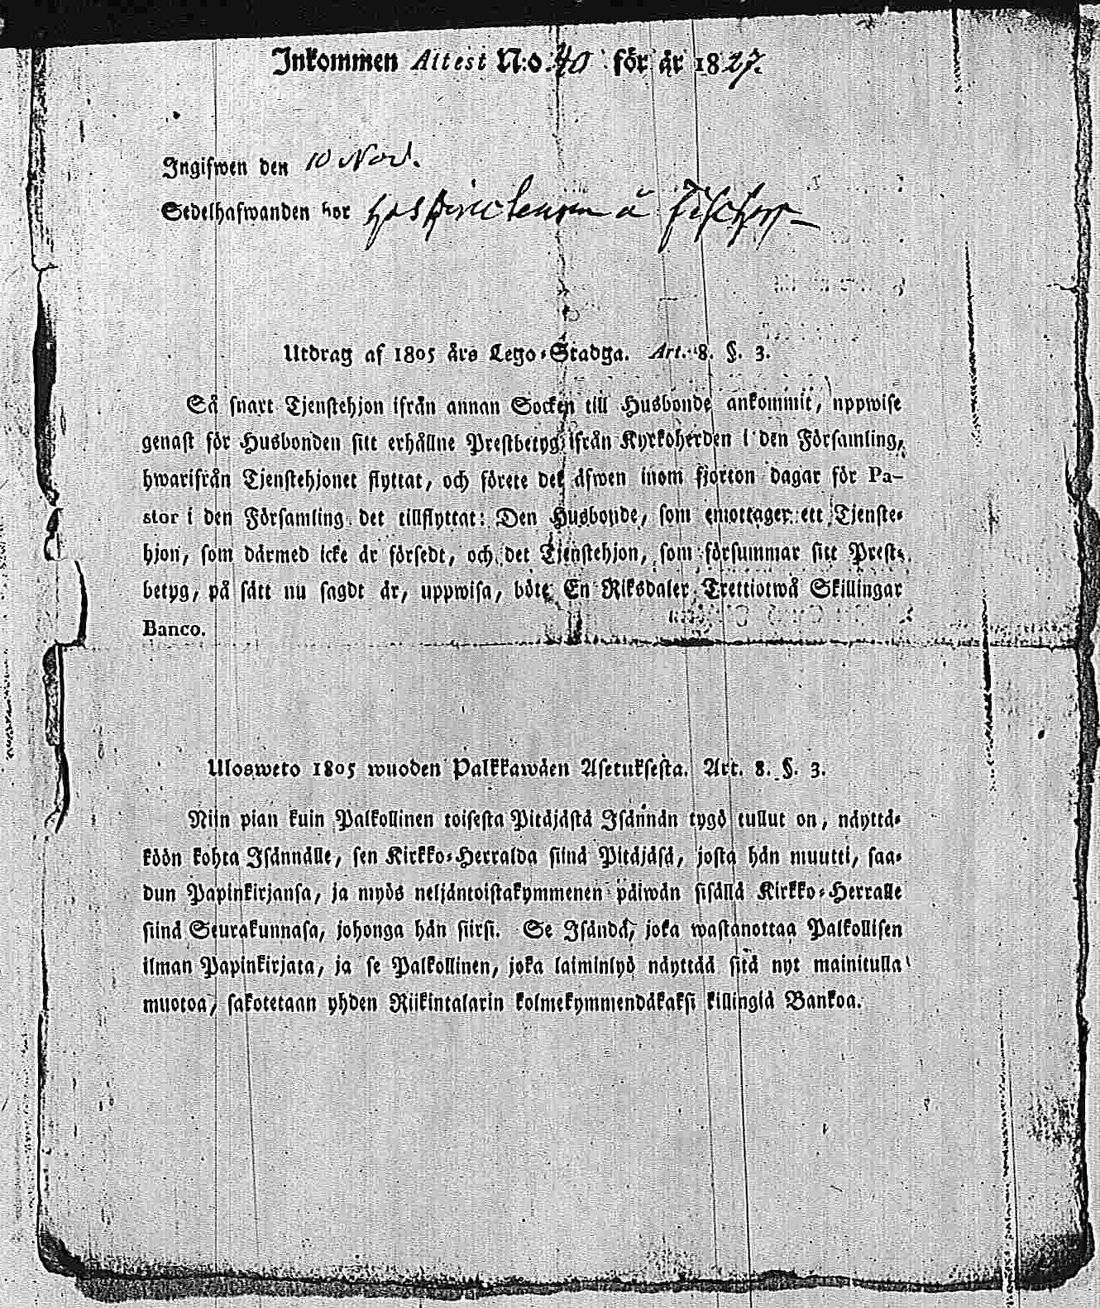 Inkommen Attest N:o 40 för år 1827.
Ingifwen den 10 Nov.
Sedelhafwanden hos
Utdrag af 1805 års Lego-Stadga. Art. 8. §. 3.
Så snart Tjenstehjon ifrån annan Socken till Husbonde ankommit, uppwise
genast för Husbonden sitt erhållne Prestbetyg ifrån Kyrkoherden i den Församling,
hwarifrån Tjenstehjonet flyttat, och förete det äfwen inom fjorton dagar för Pa-
stor i den Församling det tillflyttat: Den Husbonde, som emottager ett Tjenste-
hjon, som därmed icke är försedt, och det Tjenstehjon, som försummar sitt Prest-
betyg, på sätt nu sagdt är, uppwisa, böte En Riksdaler Trettiotwå Skillingar
Banco.
Ulosweto 1805 wuoden Palkkawäen Asetuksesta. Art. 8. §. 3.
Niin pian kuin Palkollinen toisesta Pitäjästä Isännän tygö tullut on, näyttä-
köön kohta Isännälle, sen Kirkko-Herralda siinä Pitäjäsä, josta hän muutti, saa-
dun Papinkirjansa, ja myös neljäntoistakymmenen päiwän sisällä Kirkko-Herralle
siinä Seurakunnasa, johonga hän siirsi. Se Isändä, joka wastanottaa Palkollisen
ilman Papinkirjata, ja se Palkollinen, joka laiminlyö näyttää sitä nyt mainitulla
muotoa, sakotetaan yhden Riikintalarin kolmekymmendäkaksi killingiä Bankoa.